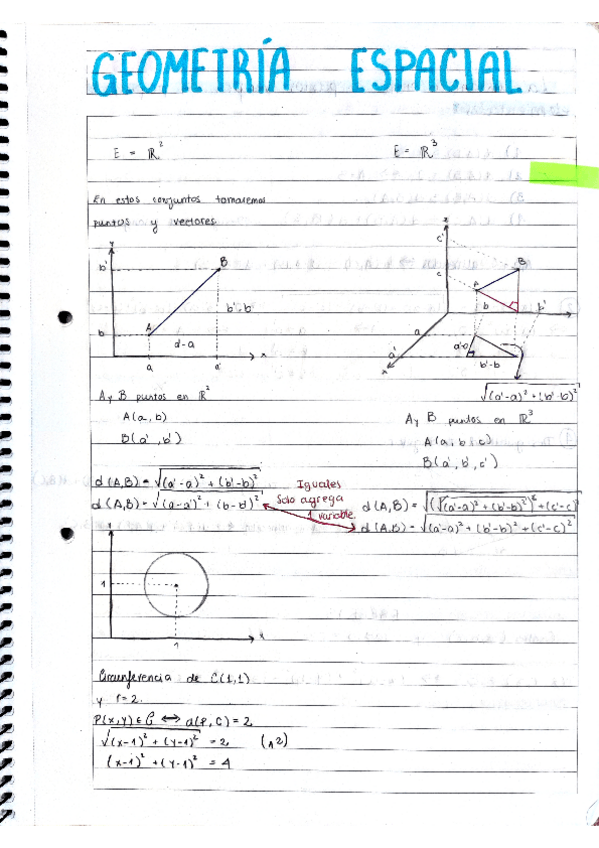 GEOMETRÍA ESPACIAL
E = ℝ²
E = ℝ³
En estos conjuntos tomaremos
puntos y vectores
y
b'
B
b'-b
b
A
d-a
a
a'
x
z
c'
B
c
A
b
b'
a
a'
a'-a
b'-b
x
√(a'-a)² + (b'-b)²
A y B puntos en ℝ²
A(a, b)
B(a', b')
A y B puntos en ℝ³
A(a, b, c)
B(a', b', c')
d(A,B) = √(a'-a)² + (b'-b)²
d(A,B) = √(a-a')² + (b-b')²
Iguales
Solo agrega
1 variable.
d(A,B) = √(√(a'-a)² + (b'-b)²)² + (c'-c)²
d(A,B) = √(a'-a)² + (b'-b)² + (c'-c)²
1
1
x
Circunferencia de C(1,1)
y r=2.
P(x,y) ∈ C ⟺ d(P,C) = 2
√(x-1)² + (y-1)² = 2 (^2)
(x-1)² + (y-1)² = 4